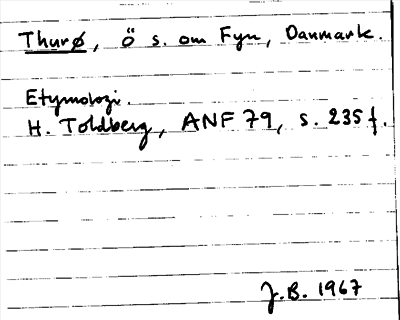 Thurø, ö s. om Fyn, Danmark.
Etymologi.
H. Toldberg, ANF 79, s. 235 f.
J.B. 1967